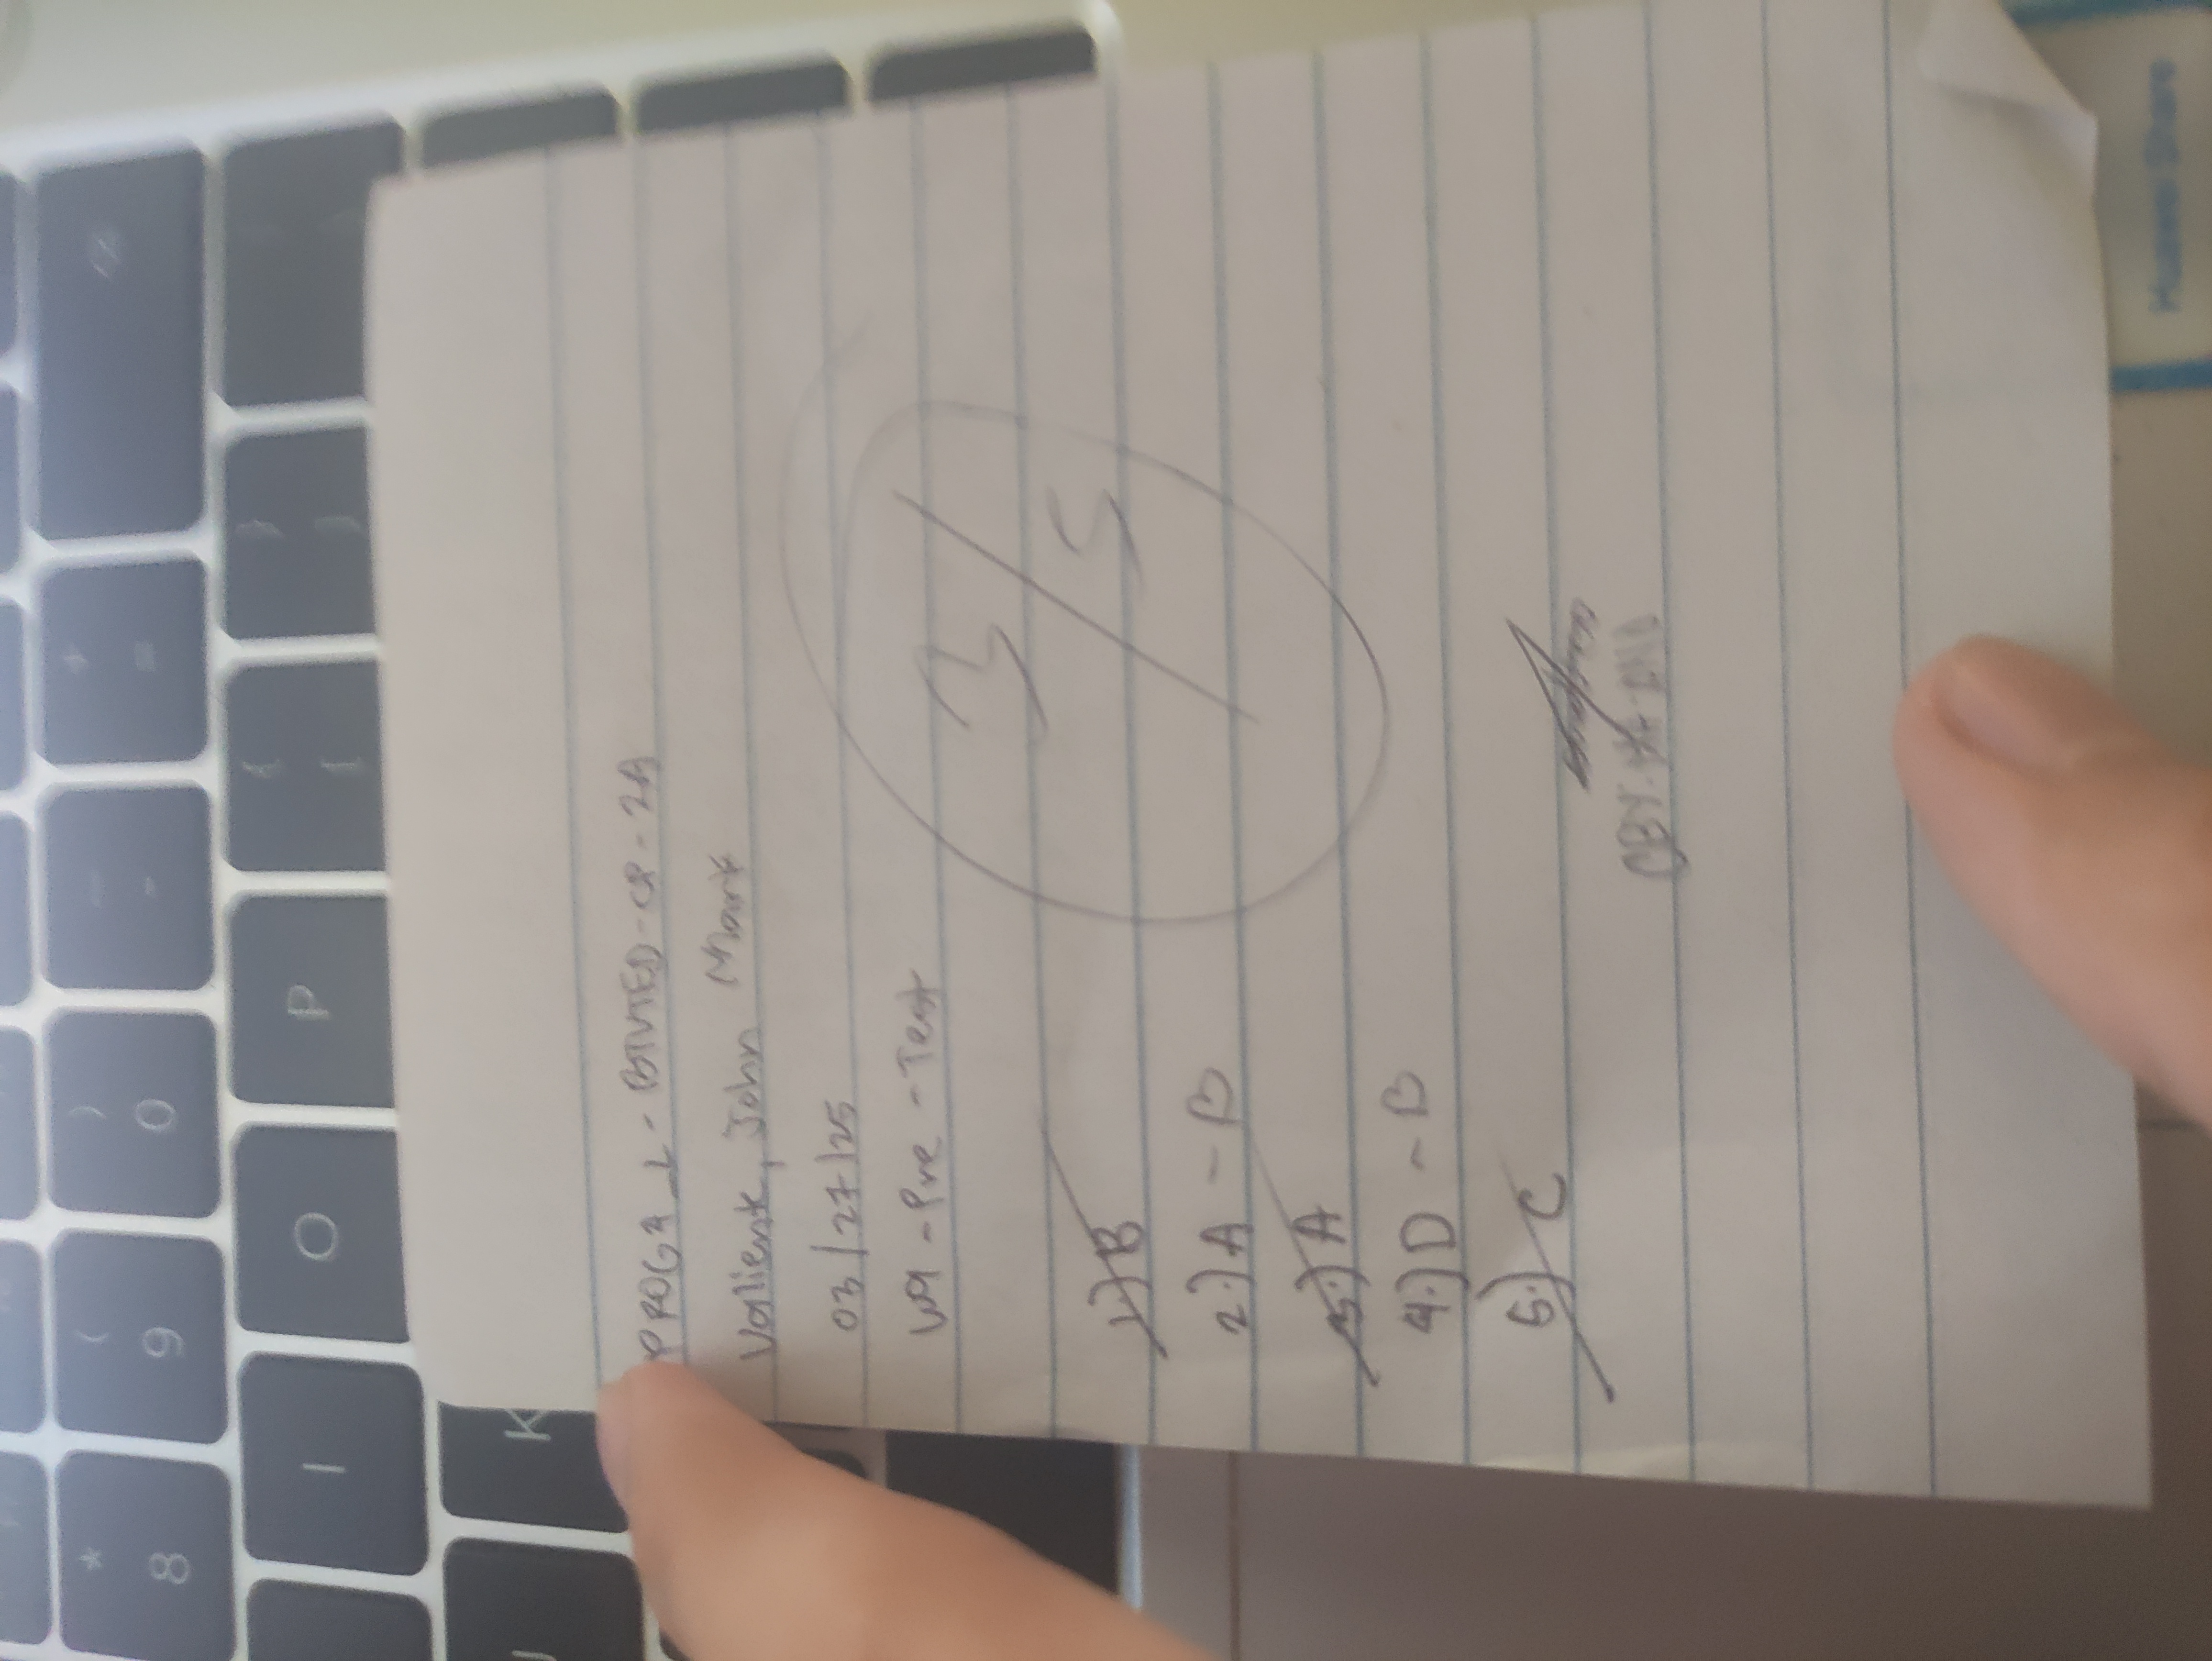 *
8
(
9
)
0
-
+
=
I
O
P
{
[
}
]
J
K
PROG4_1 - BTVTED-CP-2A
Valiente, John Mark
03/27/25
W9 - Pre - Test
3/5
1.) B
2.) A - B
3.) A
4.) D - B
5.) C
CBY:
Huawei Share